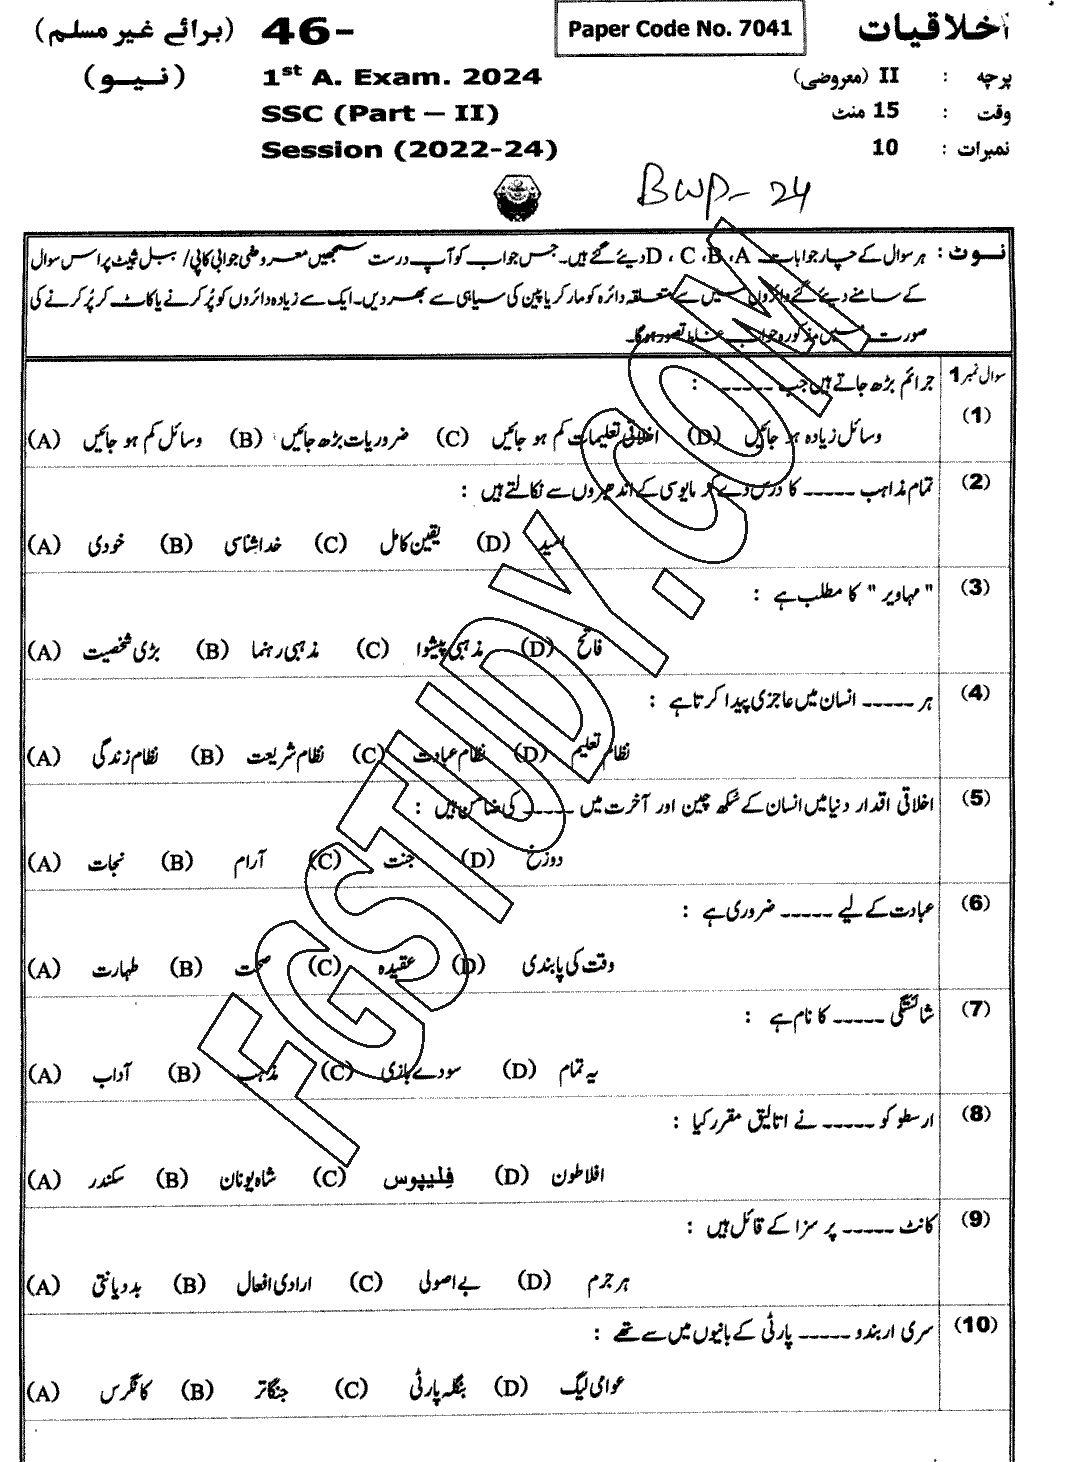 اخلاقیات Paper Code No. 7041 46- (برائے غیر مسلم)
پرچہ : II (معروضی) 1st A. Exam. 2024 (نیو)
وقت : 15 منٹ SSC (Part – II)
نمبرات : 10 Session (2022-24)
BWP-24
نوٹ : ہر سوال کے چار جوابات A، B، C، D دیئے گئے ہیں۔ جس جواب کو آپ درست سمجھیں معروضی جوابی کاپی / ببل شیٹ پر اس سوال
کے سامنے دیئے گئے دائروں میں سے متعلقہ دائرہ کو مارکر یا پین کی سیاہی سے بھر دیں۔ ایک سے زیادہ دائروں کو پُر کرنے یا کاٹ کر پُر کرنے کی
صورت میں مذکورہ جواب غلط تصور ہوگا۔
سوال نمبر 1 (1) جرائم بڑھ جاتے ہیں جب ----- :
(A) وسائل کم ہو جائیں (B) ضروریات بڑھ جائیں (C) اخلاقی تعلیمات کم ہو جائیں (D) وسائل زیادہ ہو جائیں
(2) تمام مذاہب ----- کا درس دے کر مایوسی کے اندھیروں سے نکالتے ہیں :
(A) خودی (B) خدا شناسی (C) یقین کامل (D) امید
(3) " مہاویر " کا مطلب ہے :
(A) بڑی شخصیت (B) مذہبی رہنما (C) مذہبی پیشوا (D) فاتح
(4) ہر ----- انسان میں عاجزی پیدا کرتا ہے :
(A) نظام زندگی (B) نظام شریعت (C) نظام عبادت (D) نظام تعلیم
(5) اخلاقی اقدار دنیا میں انسان کے سکھ چین اور آخرت میں ----- کی ضامن ہیں :
(A) نجات (B) آرام (C) جنت (D) دوزخ
(6) عبادت کے لیے ----- ضروری ہے :
(A) طہارت (B) صحت (C) عقیدہ (D) وقت کی پابندی
(7) شائستگی ----- کا نام ہے :
(A) آداب (B) مذہب (C) سودے بازی (D) یہ تمام
(8) ارسطو کو ----- نے اتالیق مقرر کیا :
(A) سکندر (B) شاہ یونان (C) فلیپوس (D) افلاطون
(9) کانٹ ----- پر سزا کے قائل ہیں :
(A) بددیانتی (B) ارادی افعال (C) بے اصولی (D) ہر جرم
(10) سری اربندو ----- پارٹی کے بانیوں میں سے تھے :
(A) کانگرس (B) جنگاتر (C) بنگلہ پارٹی (D) عوامی لیگ
FGSTUDY.COM